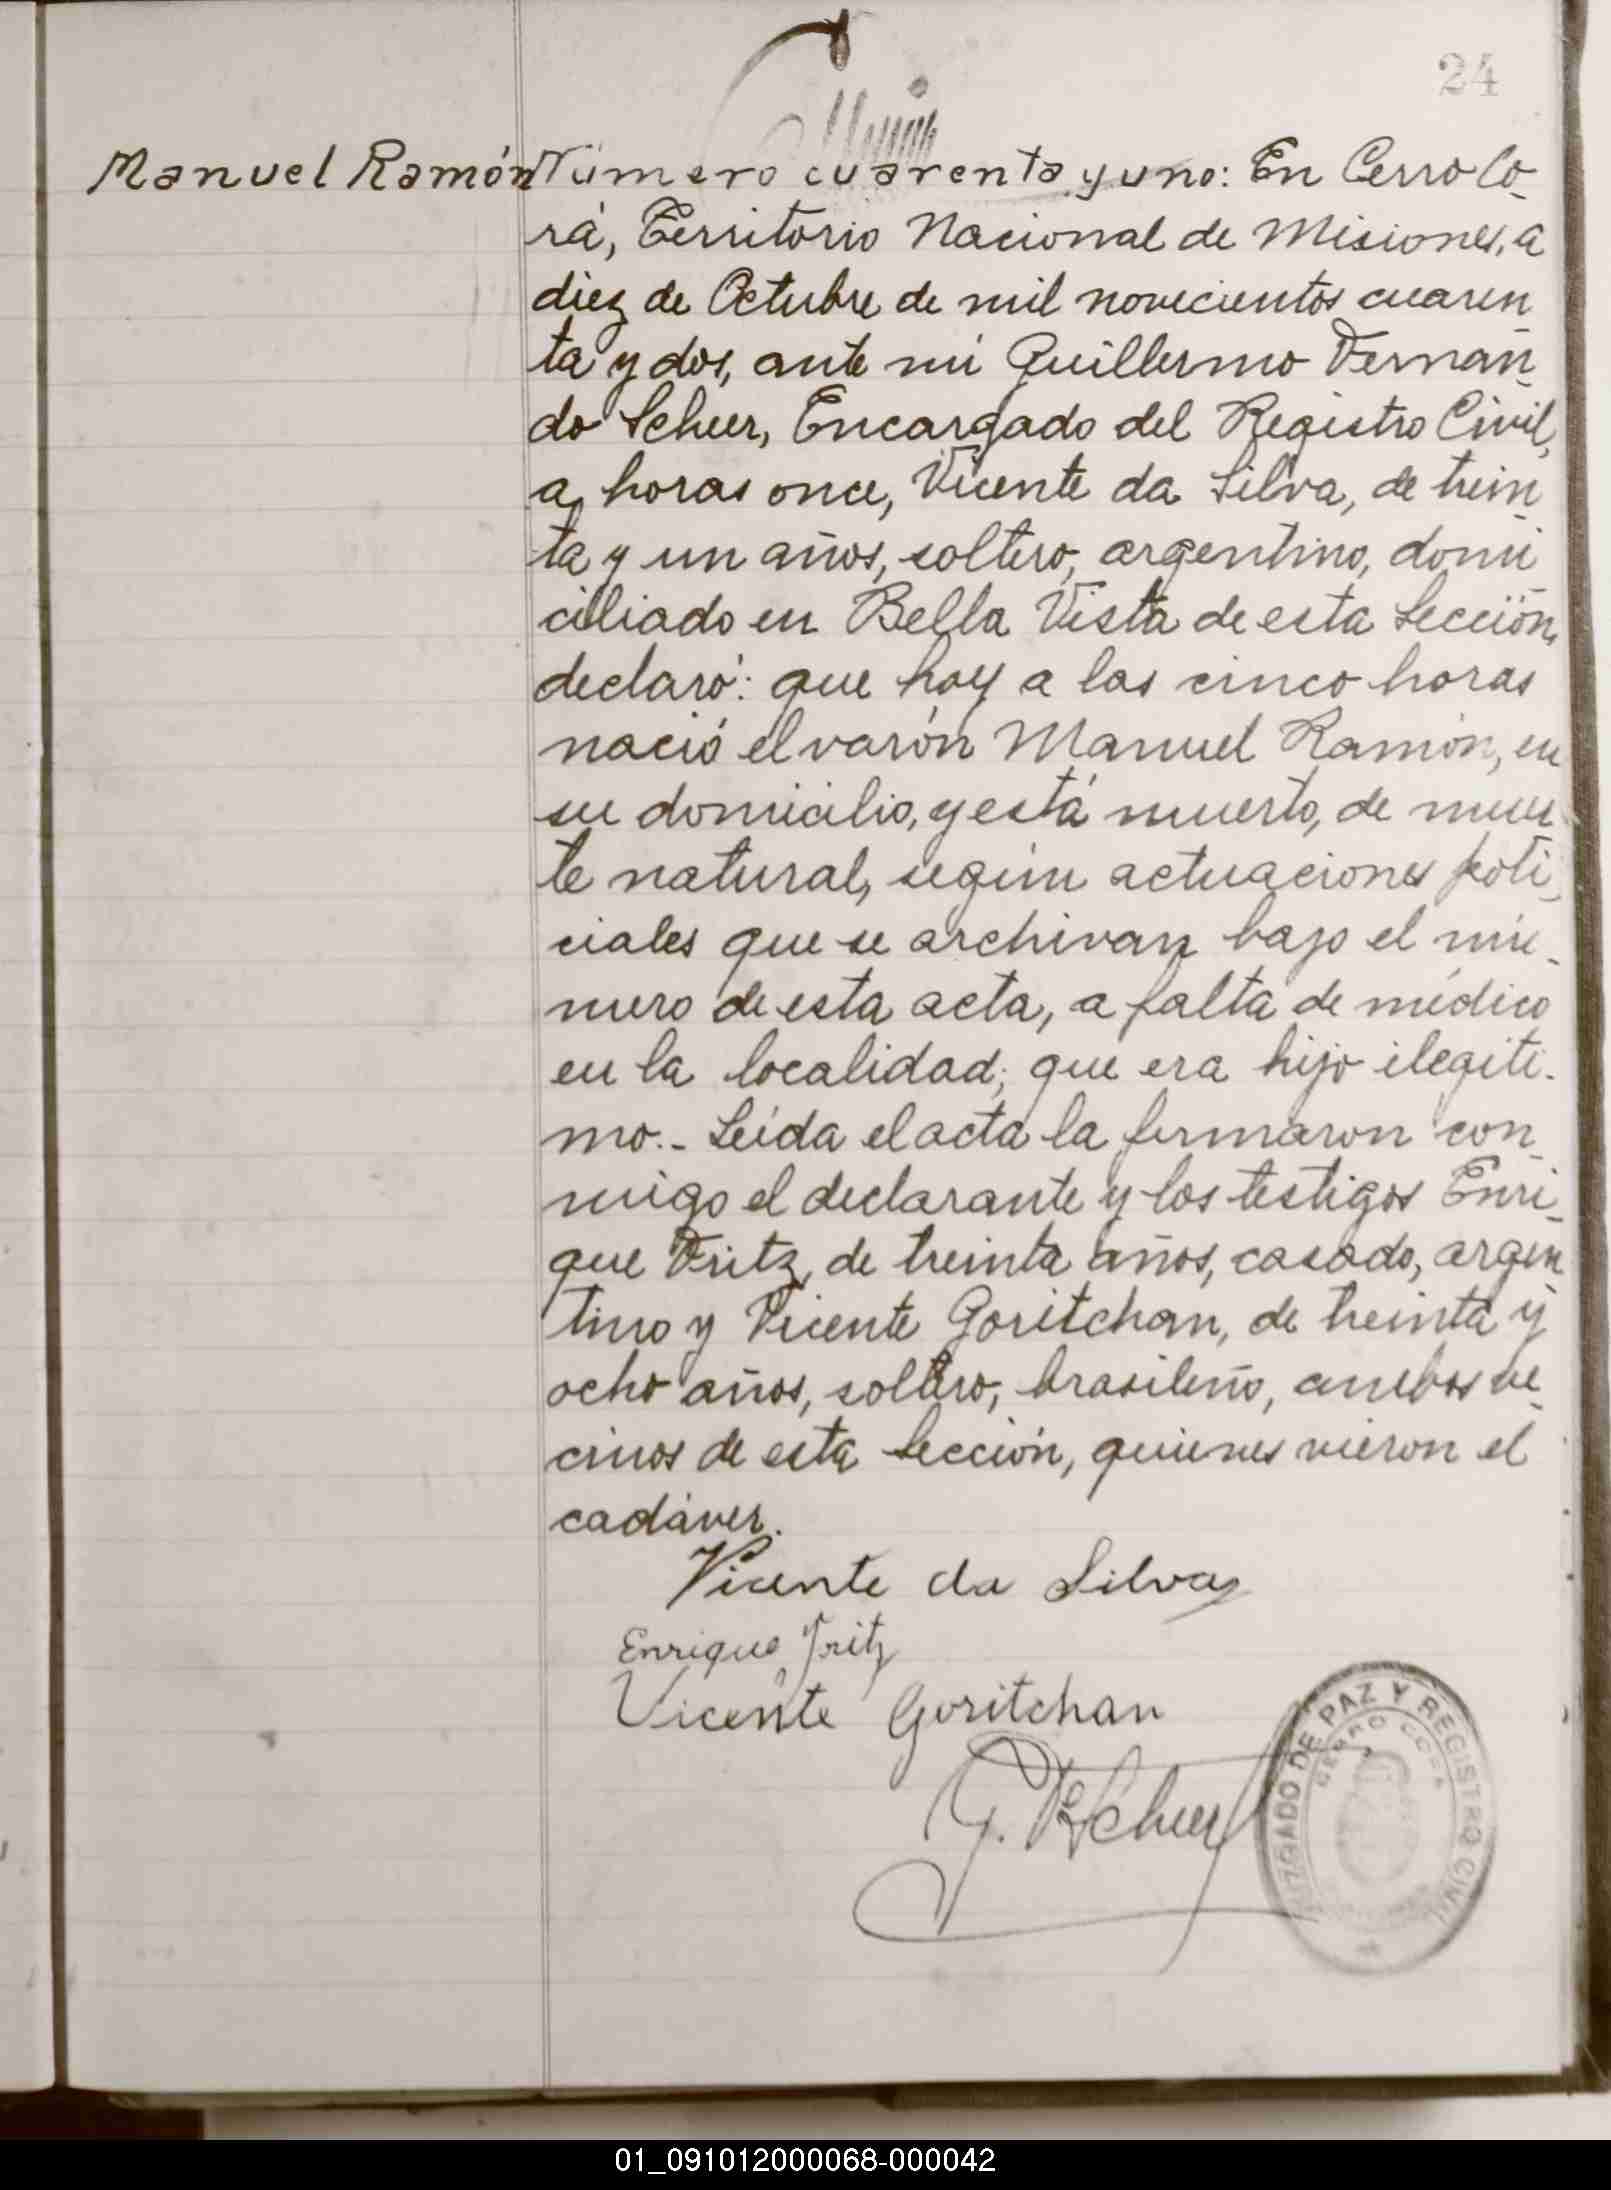 24
Manuel Ramón
Número cuarenta y uno: En Cerro Co-
rá, Territorio Nacional de Misiones, a
diez de Octubre de mil novecientos cuaren-
ta y dos, ante mi Guillermo Fernan-
do Scheer, Encargado del Registro Civil,
a horas once, Vicente da Silva, de trein-
ta y un años, soltero, argentino, domi-
ciliado en Bella Vista de esta Sección,
declaró: que hoy a las cinco horas
nació el varón Manuel Ramón, en
su domicilio, y está muerto, de muer-
te natural, según actuaciones poli-
ciales que se archivan bajo el nú-
mero de esta acta, a falta de médico
en la localidad; que era hijo ilegiti-
mo.- Leída el acta la firmaron con-
migo el declarante y los testigos Enri-
que Fritz, de treinta años, casado, argen-
tino y Vicente Goritchan, de treinta y
ocho años, soltero, brasileño, ambos ve-
cinos de esta Sección, quienes vieron el
cadáver.
Vicente da Silva
Enrique Fritz
Vicente Goritchan
G. F. Scheer
JUZGADO DE PAZ Y REGISTRO CIVIL
CERRO CORA
01_091012000068-000042